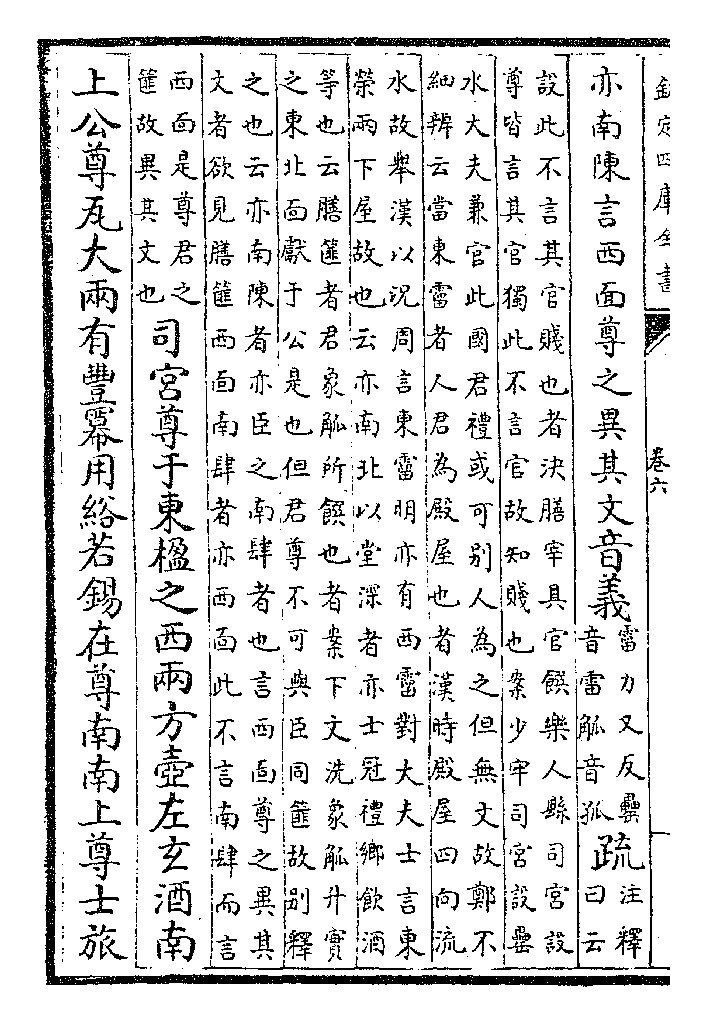 欽定四庫全書
卷六
亦南陳言西面尊之異其文音義
霤力又反罍
音雷觚音孤
疏
注釋
曰云
設此不言其官賤也者決膳宰具官饌樂人縣司宮設
尊皆言其官獨此不言官故知賤也案少牢司宮設罍
水大夫兼官此國君禮或可别人為之但無文故鄭不
細辨云當東霤者人君為殿屋也者漢時殿屋四向流
水故舉漢以況周言東霤明亦有西霤對大夫士言東
榮兩下屋故也云亦南北以堂深者亦士冠禮鄉飲酒
等也云膳篚者君象觚所饌也者案下文洗象觚升實
之東北面獻于公是也但君尊不可與臣同篚故别釋
之也云亦南陳者亦臣之南肆者也言西面尊之異其
文者欲見膳篚西面南肆者亦西面此不言南肆而言
西面是尊君之
篚故異其文也
司宮尊于東楹之西兩方壺左玄酒南
上公尊瓦大兩有豐冪用綌若錫在尊南南上尊士旅